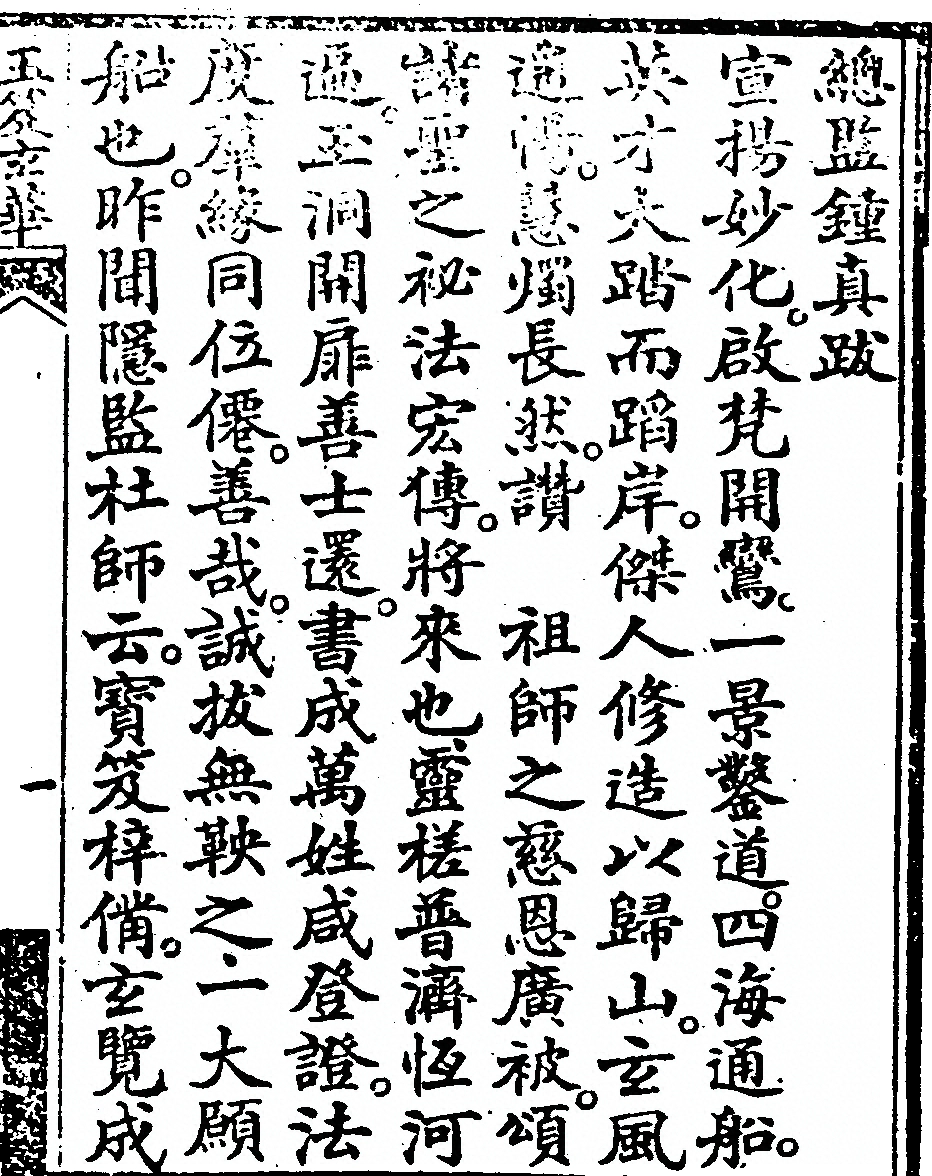 總監鍾真跋
宣揚妙化。啟梵開鸞。一景鑿道。四海通船。
英才大踏而蹈岸。傑人修造以歸山。玄風
遥暢。慧燭長然。讚　祖師之慈恩廣被。頌
諸聖之祕法宏傳。將來也靈槎普濟恆河
過。玉洞開扉善士還。書成萬姓咸登證。法
度羣緣同位僊。善哉。誠拔無鞅之一大願
船也。昨聞隱監杜師云。寶笈梓備。玄覽成
玉笈玄華
一